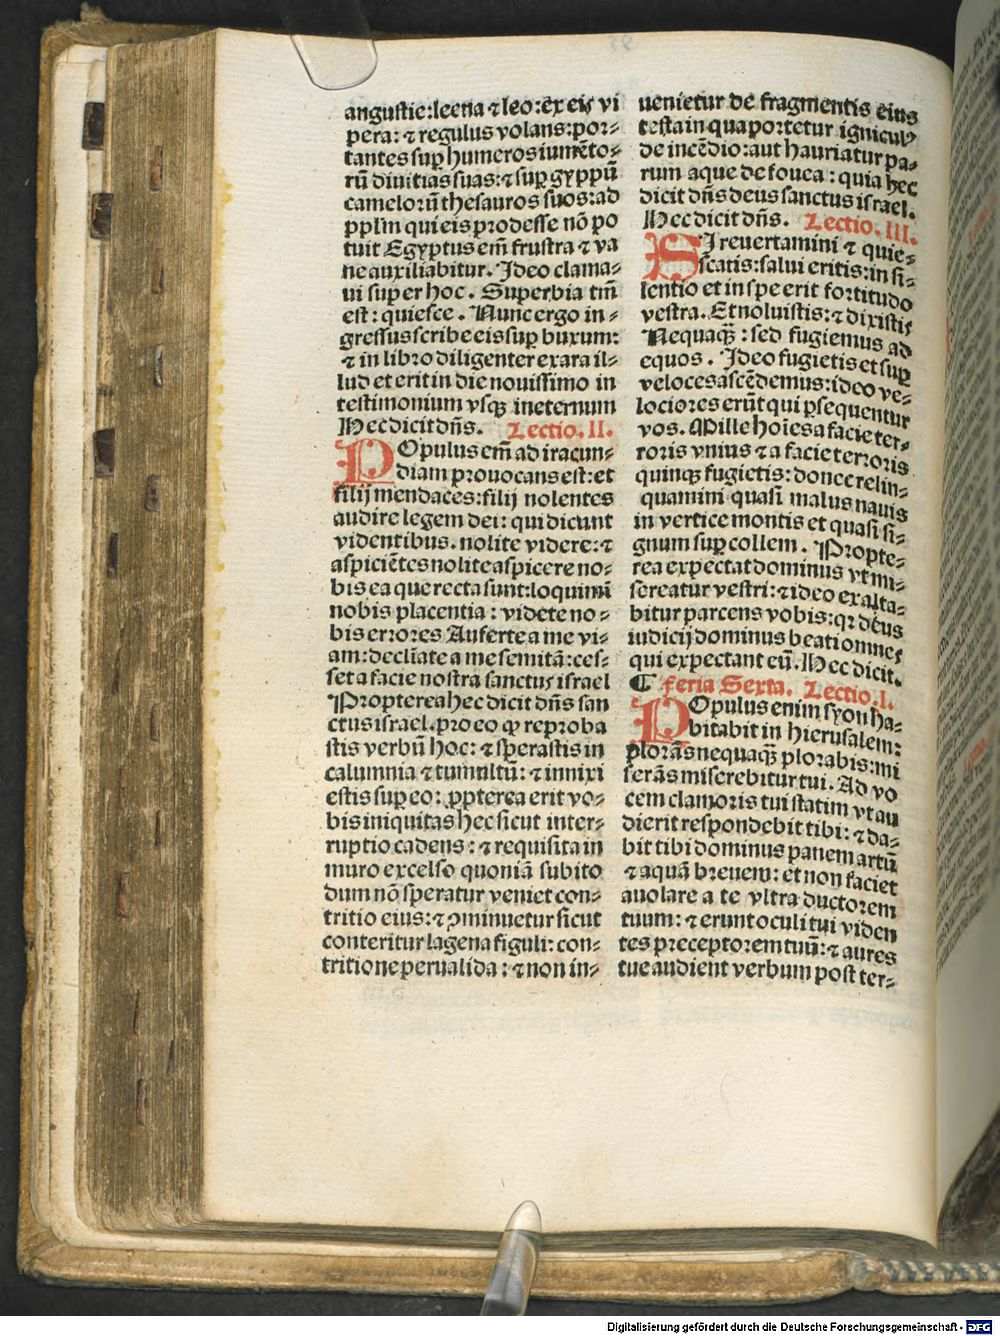 angustie:leena ⁊ leo: ex eis vi
pera: ⁊ regulus volans: por⸗
tantes suꝑ humeros iumẽto⸗
rũ diuitias suas: ⁊ suꝑ gyppũ
camelorũ thesauros suos: ad
pplm̃ qui eis prodesse nõ po
tuit Egyptus em̃ frustra ⁊ va
ne auxiliabitur. Ideo clama⸗
ui super hoc. Superbia tm̃
est: quiesce. Nunc ergo in⸗
gressus scribe eis suꝑ buxum:
⁊ in libro diligenter exara il⸗
lud et erit in die nouissimo in
testimonium vsqꝫ in eternum
Hec dicit dñs. Lectio. II.
POpulus em̃ ad iracun⸗
diam prouocans est: et
filij mendaces: filij nolentes
audire legem dei: qui dicunt
videntibus. nolite videre: ⁊
aspiciẽtes nolite aspicere no⸗
bis ea que recta sunt: loquimi
nobis placentia: videte no⸗
bis errores Auferte a me vi⸗
am: decliate a me semitã: ces⸗
set a facie nostra sanctus israel
Propterea hec dicit dñs san
ctus israel. pro eo ꝙ reproba
stis verbũ hoc: ⁊ sperastis in
calumnia ⁊ tumultu: ⁊ innixi
estis super eo: ꝓpterea erit vo⸗
bis iniquitas hec sicut inter⸗
ruptio cadens: ⁊ requisita in
muro excelso quoniã subito
dum nõ speratur veniet con⸗
tritio eius: ⁊ ꝯminuetur sicut
conteritur lagena figuli: con⸗
tritione peruallida: ⁊ non in⸗
uenietur de fragmentis eius
testa in qua portetur igniculꝰ
de incẽdio: aut hauriatur pa⸗
rum aque de fouea: quia hec
dicit dñs deus sanctus israel.
Hec dicit dñs. Lectio. III.
SI reuertamini ⁊ quie⸗
scatis: salui eritis: in si⸗
lentio et in spe erit fortitudo
vestra. Et noluistis: ⁊ dixistis
Nequaqꝫ̃: sed fugiemus ad
equos. Ideo fugietis et suꝑ
veloces ascẽdemus: ideo ve⸗
lociores erũt qui ꝑsequentur
vos. Mille hoies a facie ter⸗
roris vnius ⁊ a facie terroris
quinqꝫ fugietis: donec relin⸗
quamini quasi malus nauis
in vertice montis et quasi si⸗
gnum suꝑ collem. Propte⸗
rea expectat dominus vt mi⸗
sereatur vestri: ⁊ ideo exalta⸗
bitur parcens vobis: qꝛ deus
iudicij dominus beati omnes
qui expectant eũ. Hec dicit.
¶ feria Sexta. Lectio. I.
POpulus enim syon ha⸗
bitabit in hierusalem:
plorãs nequaqꝫ̃ plorabis: mi
serãs miserebitur tui. Ad vo
cem clamoris tui statim vt au
dierit respondebit tibi: ⁊ da⸗
bit tibi dominus panem artũ
⁊ aquã breuem: et non faciet
auolare a te vltra ductorem
tuum: ⁊ erunt oculi tui viden
tes preceptorem tuũ: ⁊ aures
tue audient verbum post ter⸗
Digitalisierung gefördert durch die Deutsche Forschungsgemeinschaft - DFG